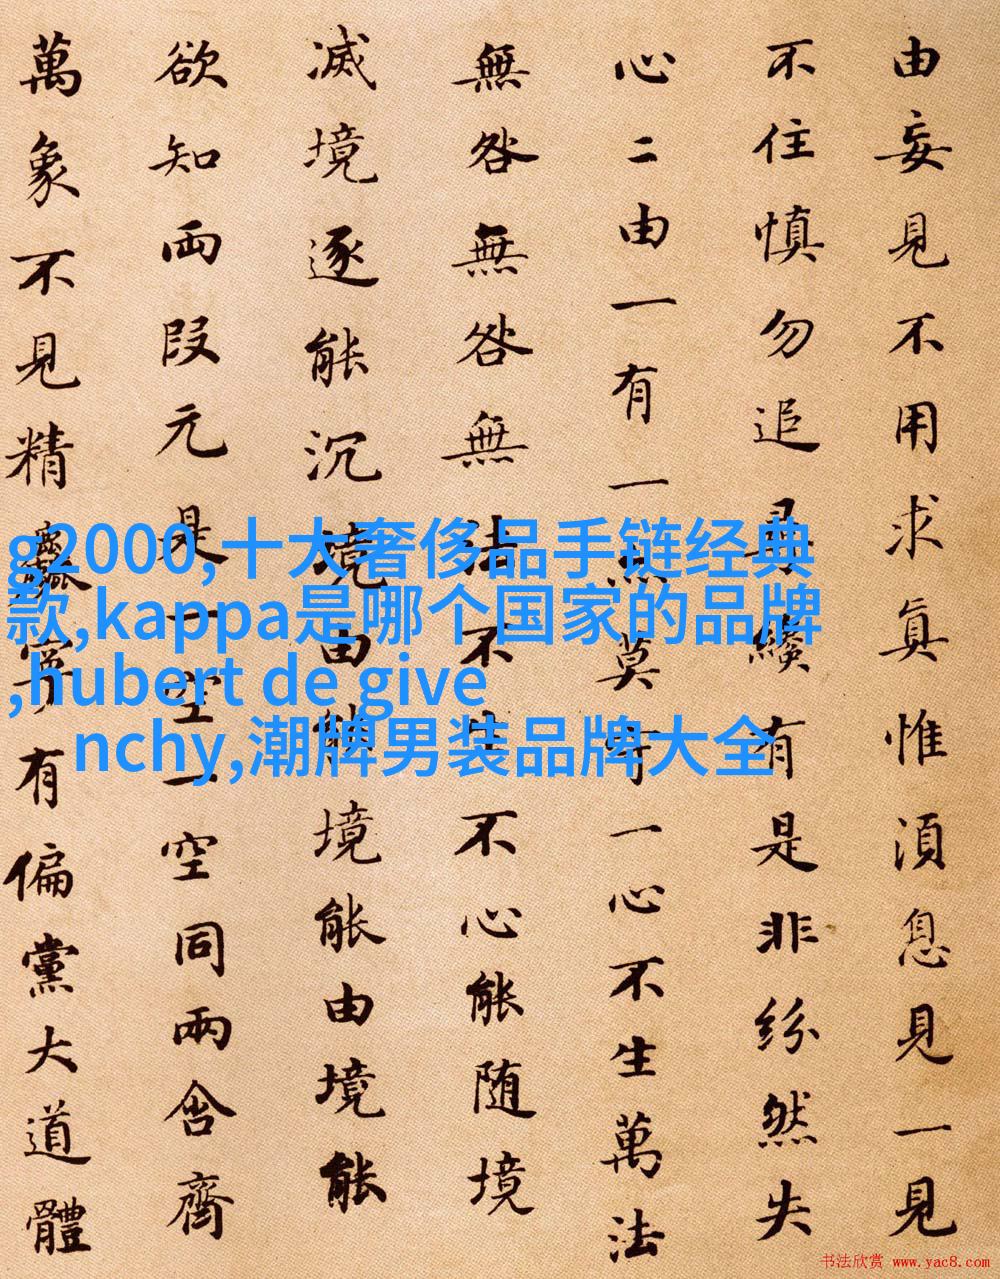 由妄見不用求眞惟湏息見一見
不住慎勿追尋纔有是非紛然失
心二由一有一亦莫守一心不生萬法
無咎無咎無法不生不心能随境
滅境逐能沉境由能境能由境能
欲知兩段元是一空一空同兩含齊
萬象不見精麤寧有偏黨大道體
g2000,十大奢侈品手链经典
款,kappa是哪个国家的品牌
,hubert de give
nchy,潮牌男装品牌大全
书法欣赏 www.yac8.com